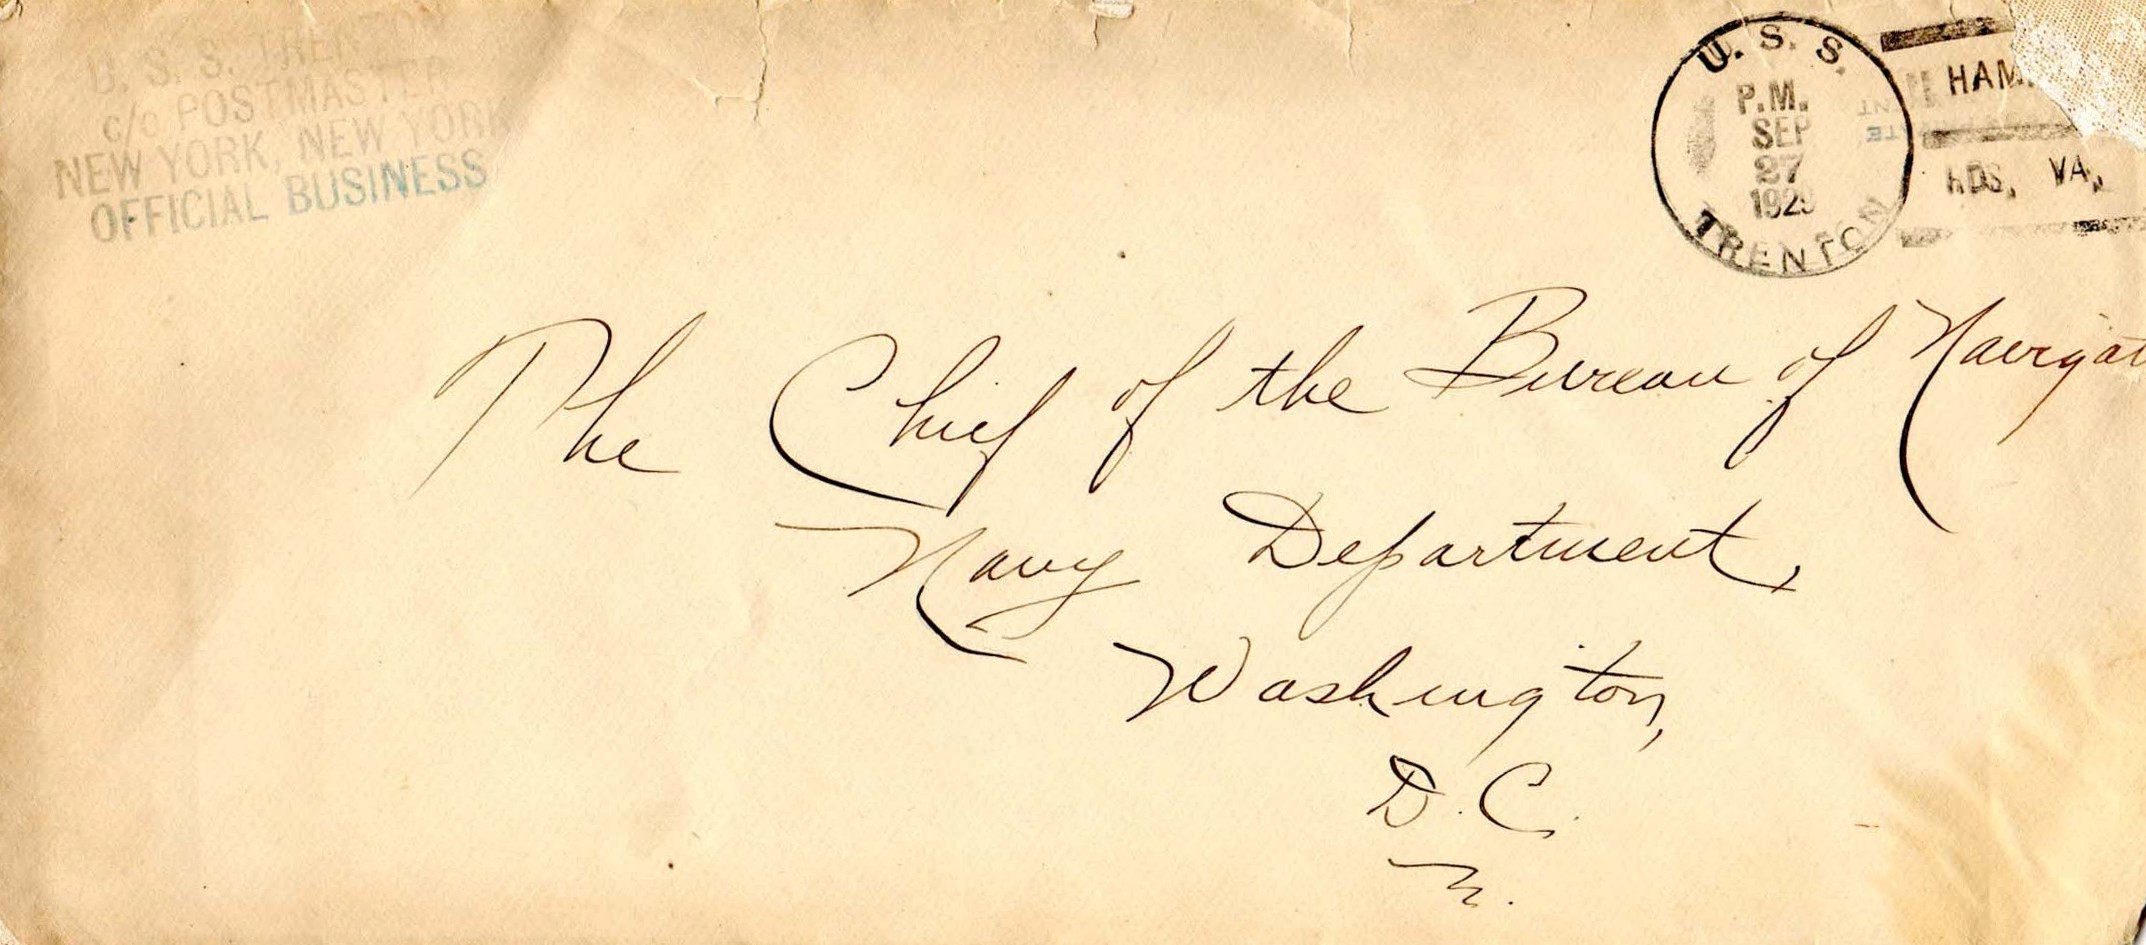 U. S. S. TREN
c/o POSTMASTER
NEW YORK, NEW YORK
OFFICIAL BUSINESS
U. S. S.
P.M.
SEP
27
1929
TRENTON
HAM
ADS, VA,
The Chief of the Bureau of Navigat
Navy Department,
Washington,
D.C.